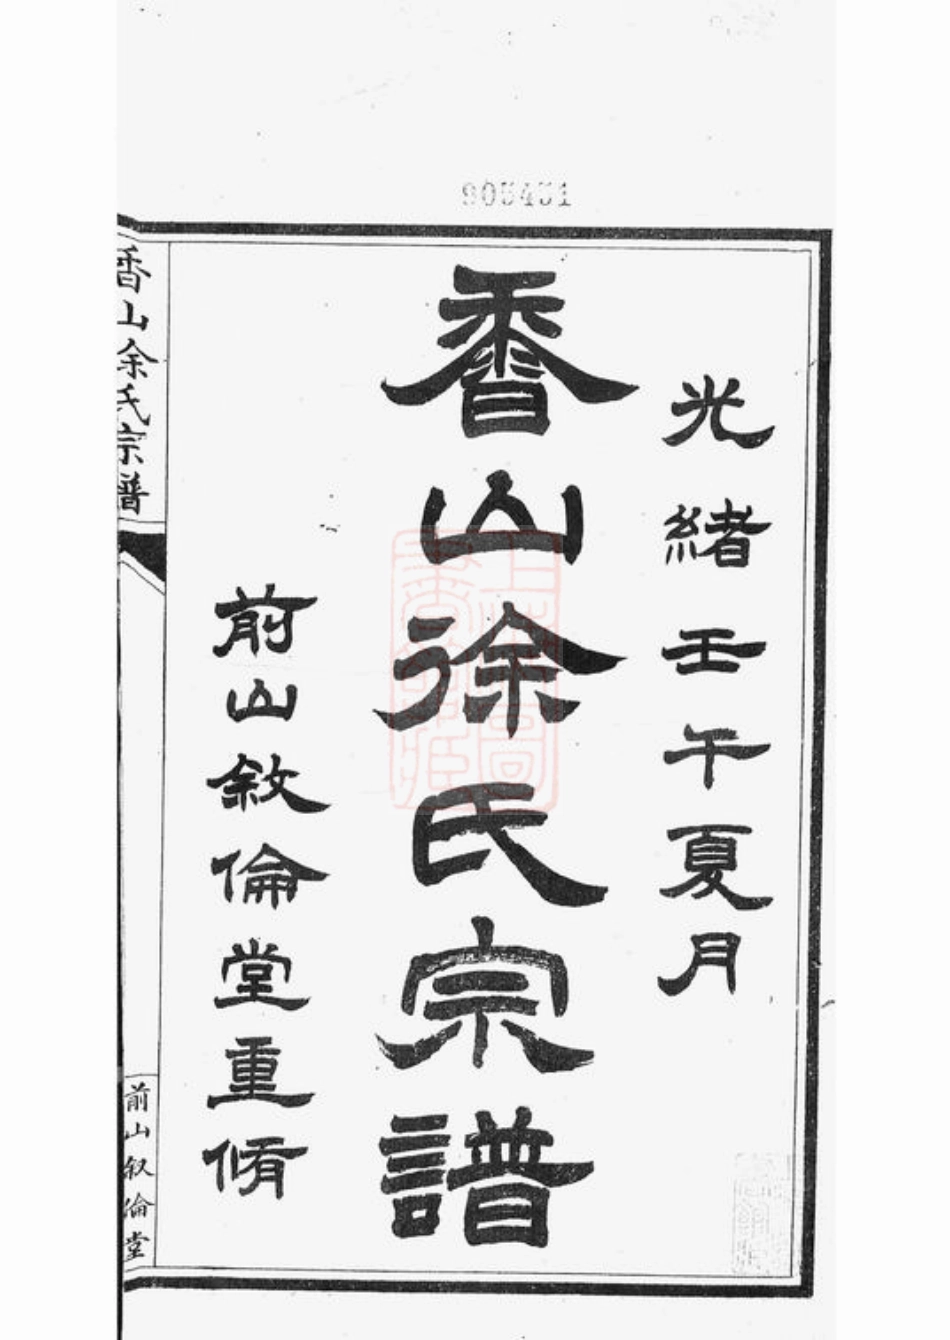 905431
光緒壬午夏月
香山徐氏宗譜
前山敘倫堂重脩
香山徐氏宗譜
前山叙倫堂